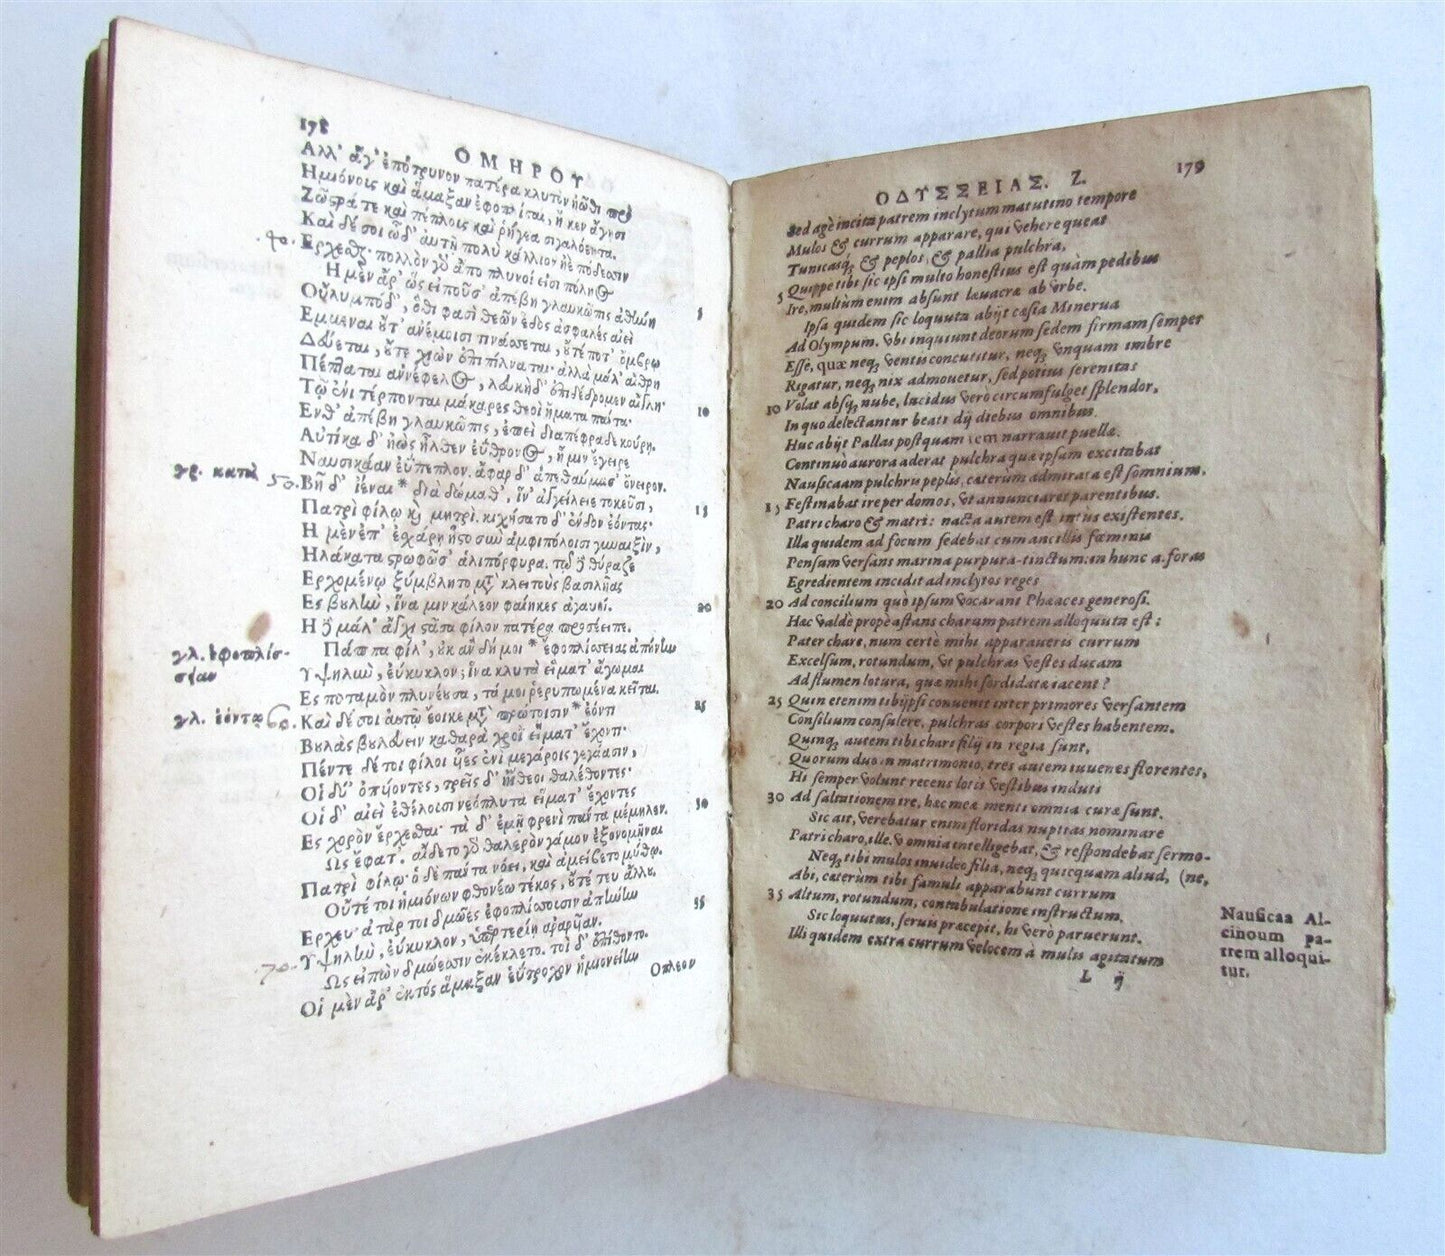 178
ΟΜΗΡΟΥ
Αλλ' ἄγ' ἐπότρυνον πατέρα κλυτὸν ἠῶθι πρὸ
Ημιόνοις καὶ ἅμαξαν ἐφοπλίσαι, ἥ κεν ἄγησι
Ζῶςρά τε καὶ πέπλοις καὶ ῥήγεα σιγαλόεντα.
Καὶ δέ σοι ὧδ' αὐτῇ πολὺ κάλλιον ἠὲ πόδεσσιν
40. Ερχεσθαι· πολλὸν γὸ ἀπο πλυνοί εἰσι πόληος
Η μὲν ἄρ' ὣς εἰποῦσ' ἀπέβη γλαυκῶπις ἀθήνη 5
Οὔλυμπόνδ', ὅθι φασὶ θεῶν ἕδος ἀσφαλὲς αἰεὶ
Εμμεναι οὔτ' ἀνέμοισι τινάσσεται, οὔτέ ποτ' ὄμβρῳ
Δεύεται, οὔτε χιὼν ἐπιπίλναται· ἀλλὰ μάλ' αἴθρη
Πέπταται ἀννέφελος, λευκὴ δ' ἐπιδέδρομεν αἴγλη·
Τῷ ἐνὶ τέρπονται μάκαρες θεοὶ ἤματα πάντα· 10
Ενθ' ἀπέβη γλαυκῶπις, ἐπεὶ διαπέφραδε κούρῃ.
Αὐτίκα δ' ἠὼς ἦλθεν ἐΰθρονος, ἥ μιν ἔγειρε
Ναυσικάαν ἐΰπεπλον. ἄφαρ δ' ἀπεθαύμασ' ὄνειρον.
γρ. κατὰ 50. Βῆ δ' ἰέναι * διὰ δώμαθ', ἵν' ἀγγείλειε τοκεῦσι,
Πατρὶ φίλῳ καὶ μητρὶ. κιχήσατο δ' ἔνδον ἐόντας· 15
Η μὲν ἐπ' ἐσχάρῃ ἧςο σὺν ἀμφιπόλοισι γυναιξὶν,
Ηλάκατα ςρωφῶσ' ἁλιπόρφυρα. τῷ δὲ θύραζε
Ερχομένῳ ξύμβλητο μετὰ κλειτοὺς βασιλῆας
Ες βουλὴν, ἵνα μιν κάλεον φαίηκες ἀγαυοί.
Η δὲ μάλ' ἄγχι ςᾶσα φίλον πατέρα προσέειπε. 20
Πάππα φίλ', οὐκ ἂν δή μοι * ἐφοπλίσσειας ἀπήνην
γλ. ἐφοπλίσ-
σειαν
Υψηλὴν, ἐύκυκλον; ἵνα κλυτὰ εἵματ' ἄγωμαι
Ες ποταμὸν πλυνέουσα, τά μοι ῥερυπωμένα κεῖται.
γλ. ἐόντα 60. Καὶ δέ σοι αὐτῷ ἔοικε μετὰ πρώτοισιν * ἐόντι 25
Βουλὰς βουλεύειν καθαρὰ χροῒ εἵματ' ἔχοντι·
Πέντε δέ τοι φίλοι υἷες ἐνὶ μεγάροις γεγάασιν,
Οἱ δύ' ὀπύοντες, τρεῖς δ' ἠΐθεοι θαλέθοντες·
Οἱ δ' αἰεὶ ἐθέλουσι νεόπλυτα εἵματ' ἔχοντες
Ες χορὸν ἔρχεσθαι· τὰ δ' ἐμῇ φρενὶ πάντα μέμηλεν. 30
Ως ἔφατ'. αἴδετο γὸ θαλερὸν γάμον ἐξονομῆναι
Πατρὶ φίλῳ· ὁ δὲ πάντα νόει, καὶ ἀμείβετο μύθῳ.
Οὔτέ τοι ἡμιόνων φθονέω τέκος, οὔτέ τευ ἄλλου.
Ερχευ· ἀτάρ τοι δμῶες ἐφοπλίσσουσιν ἀπήνην 35
Υψηλὴν, ἐύκυκλον, ὑπερτερίῃ ἀραρυῖαν.
70. Ως εἰπὼν δμώεσσιν ἐκέκλετο. τοὶ δ' ἐπίθοντο.
Οἱ μὲν ἄρ' ἐκτὸς ἅμαξαν ἐΰτροχον ἡμιονείην
Οπλεον
ΟΔΥΣΣΕΙΑΣ. Ζ. 179
Sed agè incita patrem inclytum matutino tempore
Mulos & currum apparare, qui vehere queat
Tunicasq; & peplos, & pallia pulchra,
Quippe tibi sic ipsi multo honestius est quàm pedibus
5 Ire, multùm enim absunt lauacra ab vrbe.
Ipsa quidem sic loquuta abijt cæsia Minerua
Ad Olympum. vbi inquiunt deorum sedem firmam semper
Esse, quæ neq; ventis concutitur, neq; vnquam imbre
Rigatur, neq; nix admouetur, sed potius serenitas
10 Volat absq; nube, lucidus verò circumfulget splendor,
In quo delectantur beati dij diebus omnibus.
Huc abijt Pallas postquam rem narrauit puellæ.
Continuò aurora aderat pulchra quæ ipsam excitabat
Nausicaam pulchru peplis, cæterùm admirata est somnium.
15 Festinabat ire per domos, vt annunciaret parentibus.
Patri charo & matri: nacta autem est intus existentes.
Illa quidem ad focum sedebat cum ancillis fæminis
Pensum versans marina purpura-tinctum: in hunc à foras
Egredientem incidit ad inclytos reges
20 Ad concilium quò ipsum vocarant Phæaces generosi.
Hæc valdè propè astans charum patrem alloquuta est:
Pater chare, num certè mihi apparaueris currum
Excelsum, rotundum, vt pulchras vestes ducam
Ad flumen lotura, quæ mihi sordidatæ iacent?
25 Quin etenim tibijpsi conuenit inter primores versantem
Consilium consulere, pulchras corpori vestes habentem.
Quinq; autem tibi chari filij in regia sunt,
Quorum duo in matrimonio, tres autem iuuenes florentes,
Hi semper volunt recens lotis vestibus induti
30 Ad saltationem ire, hæc meæ menti omnia curæ sunt.
Sic ait, verebatur enim floridas nuptias nominare
Patri charo, ille v omnia intelligebat, & respondebat sermo-
Neq; tibi mulos inuideo filia, neq; quicquam aliud, (ne,
Abi, cæterùm tibi famuli apparabunt currum
35 Altum, rotundum, contabulatione instructum.
Sic loquutus, seruis præcepit, hi verò paruerunt.
Illi quidem extra currum velocem à mulis agitatum
Nausicaa Al-
cinoum pa-
trem alloqui-
tur.
L ij